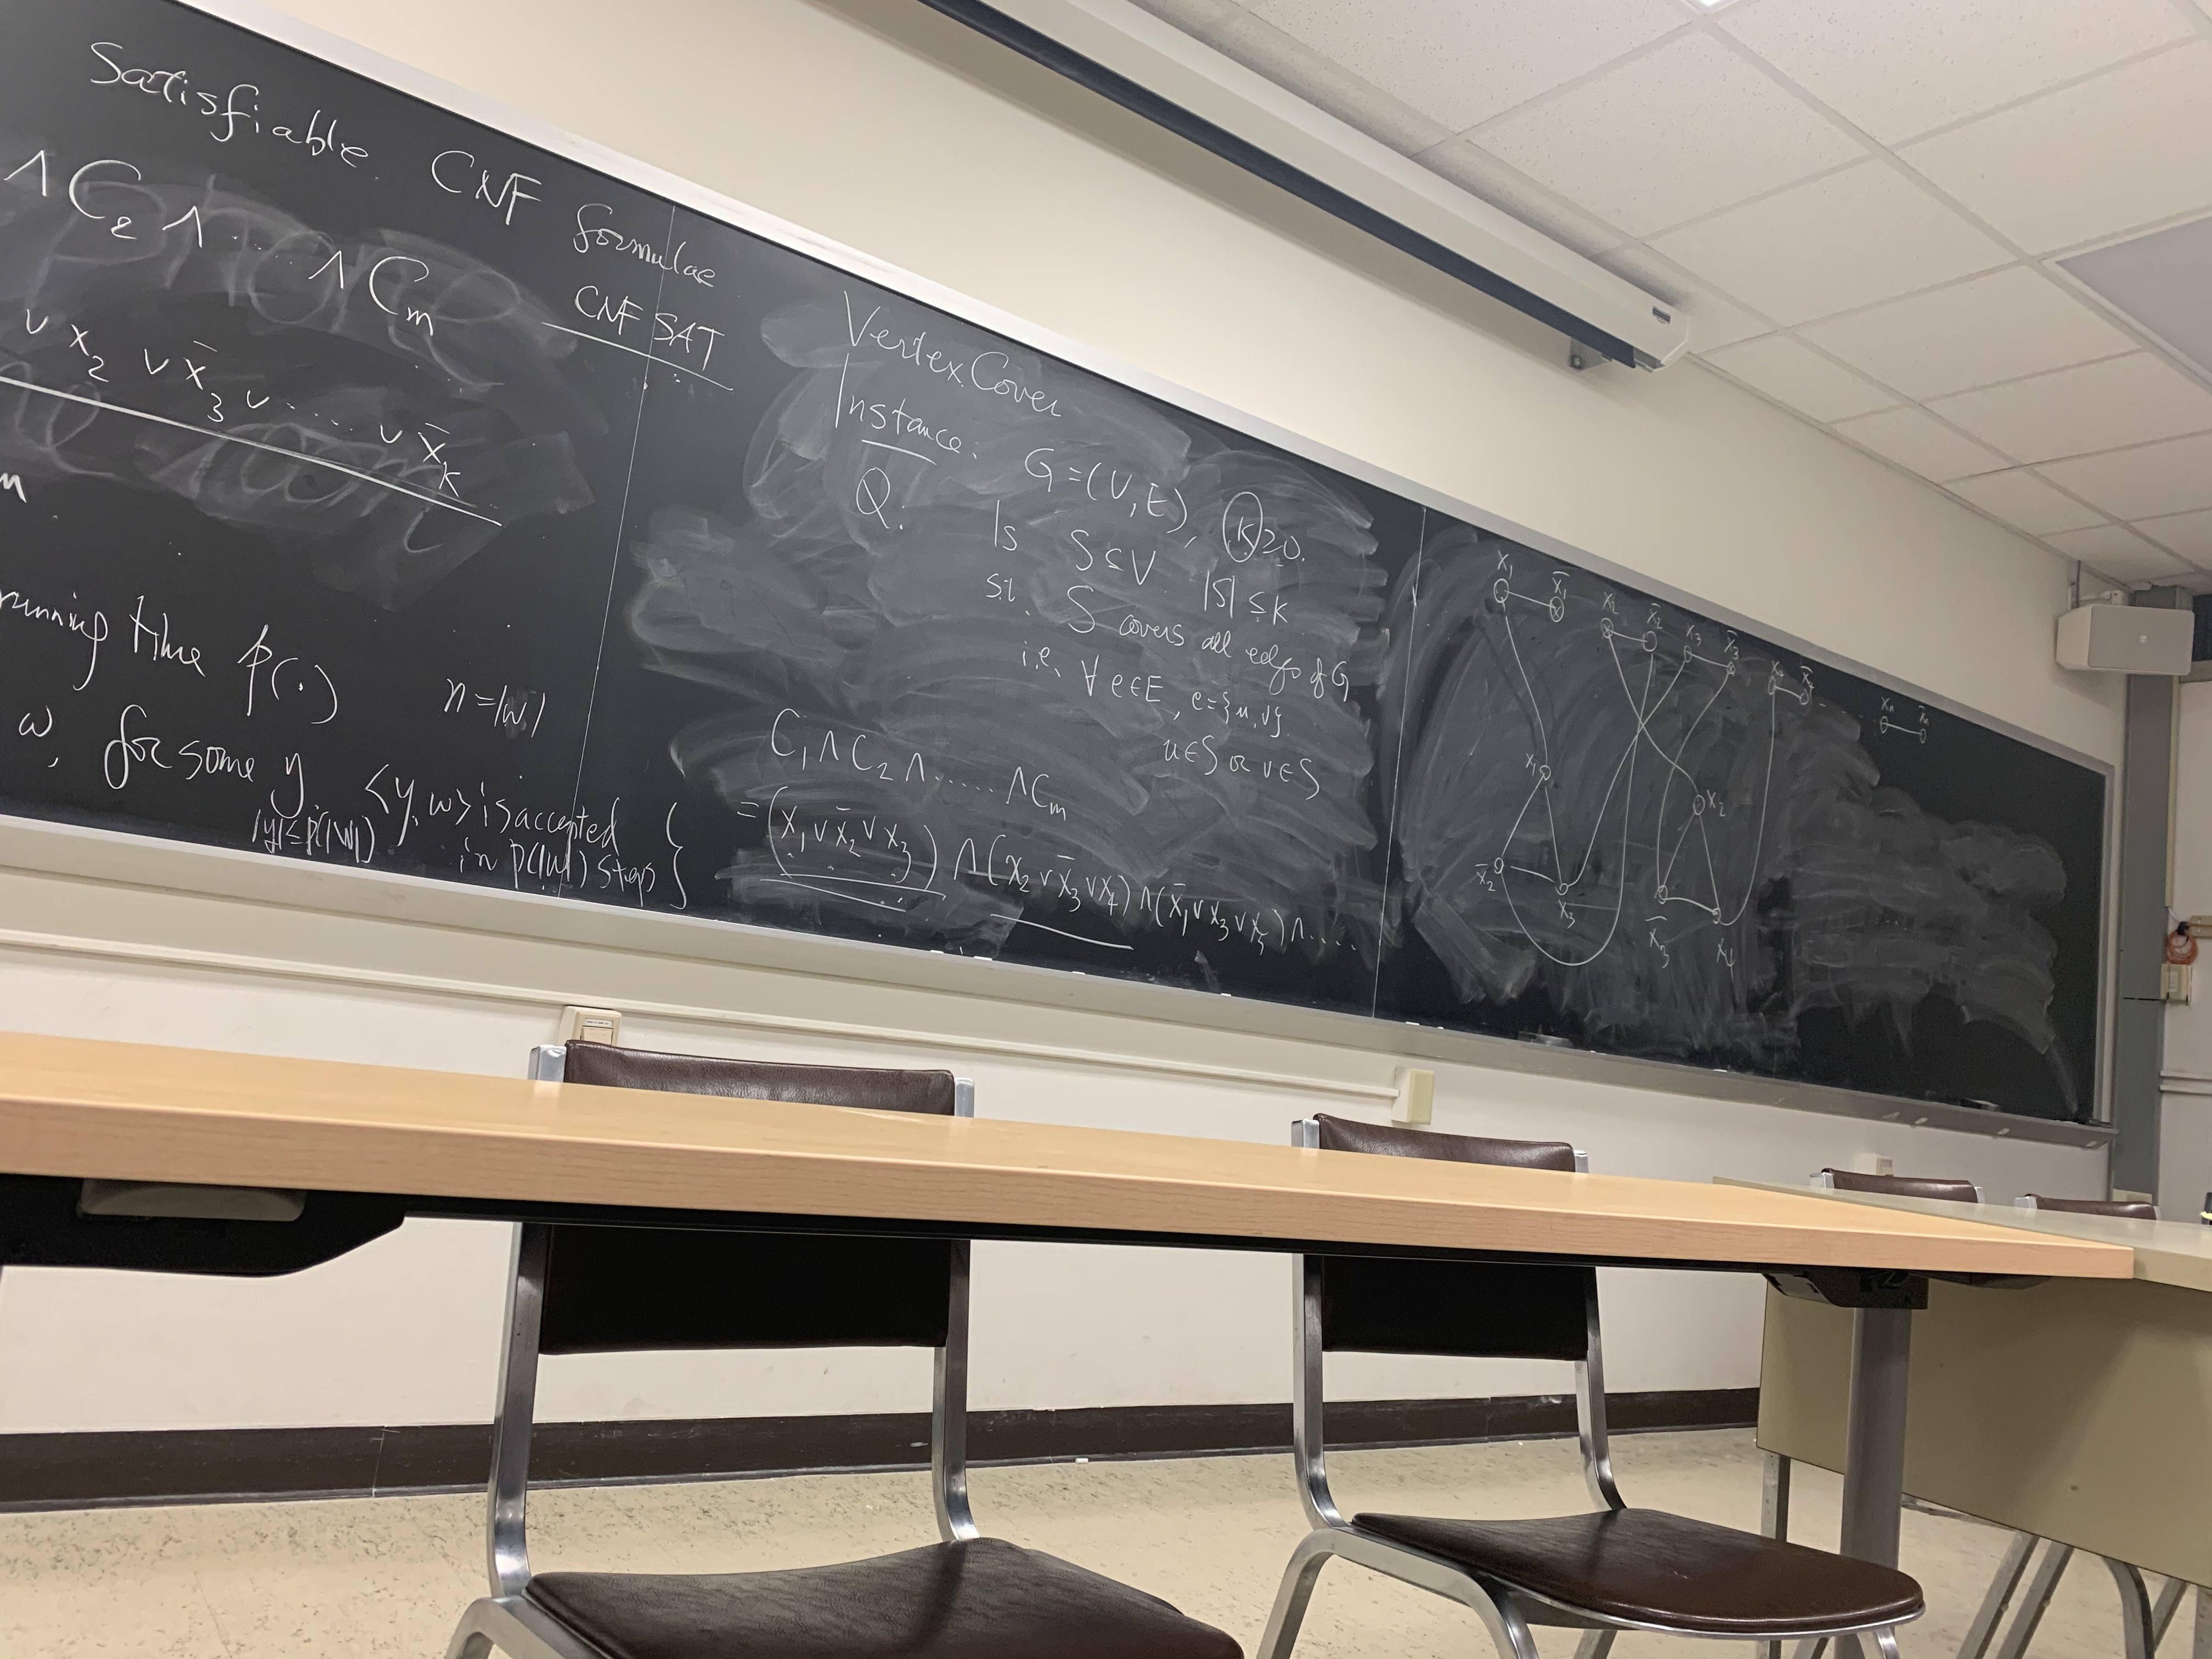 Satisfiable CNF formulae
CNF SAT
∧ C₂ ∧ ... ∧ Cₘ
∨ x₂ ∨ x̄₃ ∨ .... ∨ x̄ₖ
m
running time p(.) n=|w|
w, for some y <y,w> is accepted
|y|≤p(|w|) in p(|w|) steps }
Vertex Cover
Instance: G=(V,E), K≥0.
Q. Is S⊆V |S|≤K
s.t. S covers all edges of G
i.e. ∀e∈E, e={u,v}.
u∈S or v∈S
C₁ ∧ C₂ ∧ ..... ∧ Cₘ
= (x₁ ∨ x̄₂ ∨ x₃) ∧ (x₂ ∨ x̄₃ ∨ x₄) ∧ (x̄₁ ∨ x₃ ∨ x₅) ∧ ....
x₁ x̄₁ x₂ x̄₂ x₃ x̄₃ x₄ x̄₄ .... xₙ x̄ₙ
x₁ x₂
x̄₂ x₃ x̄₃ x₄